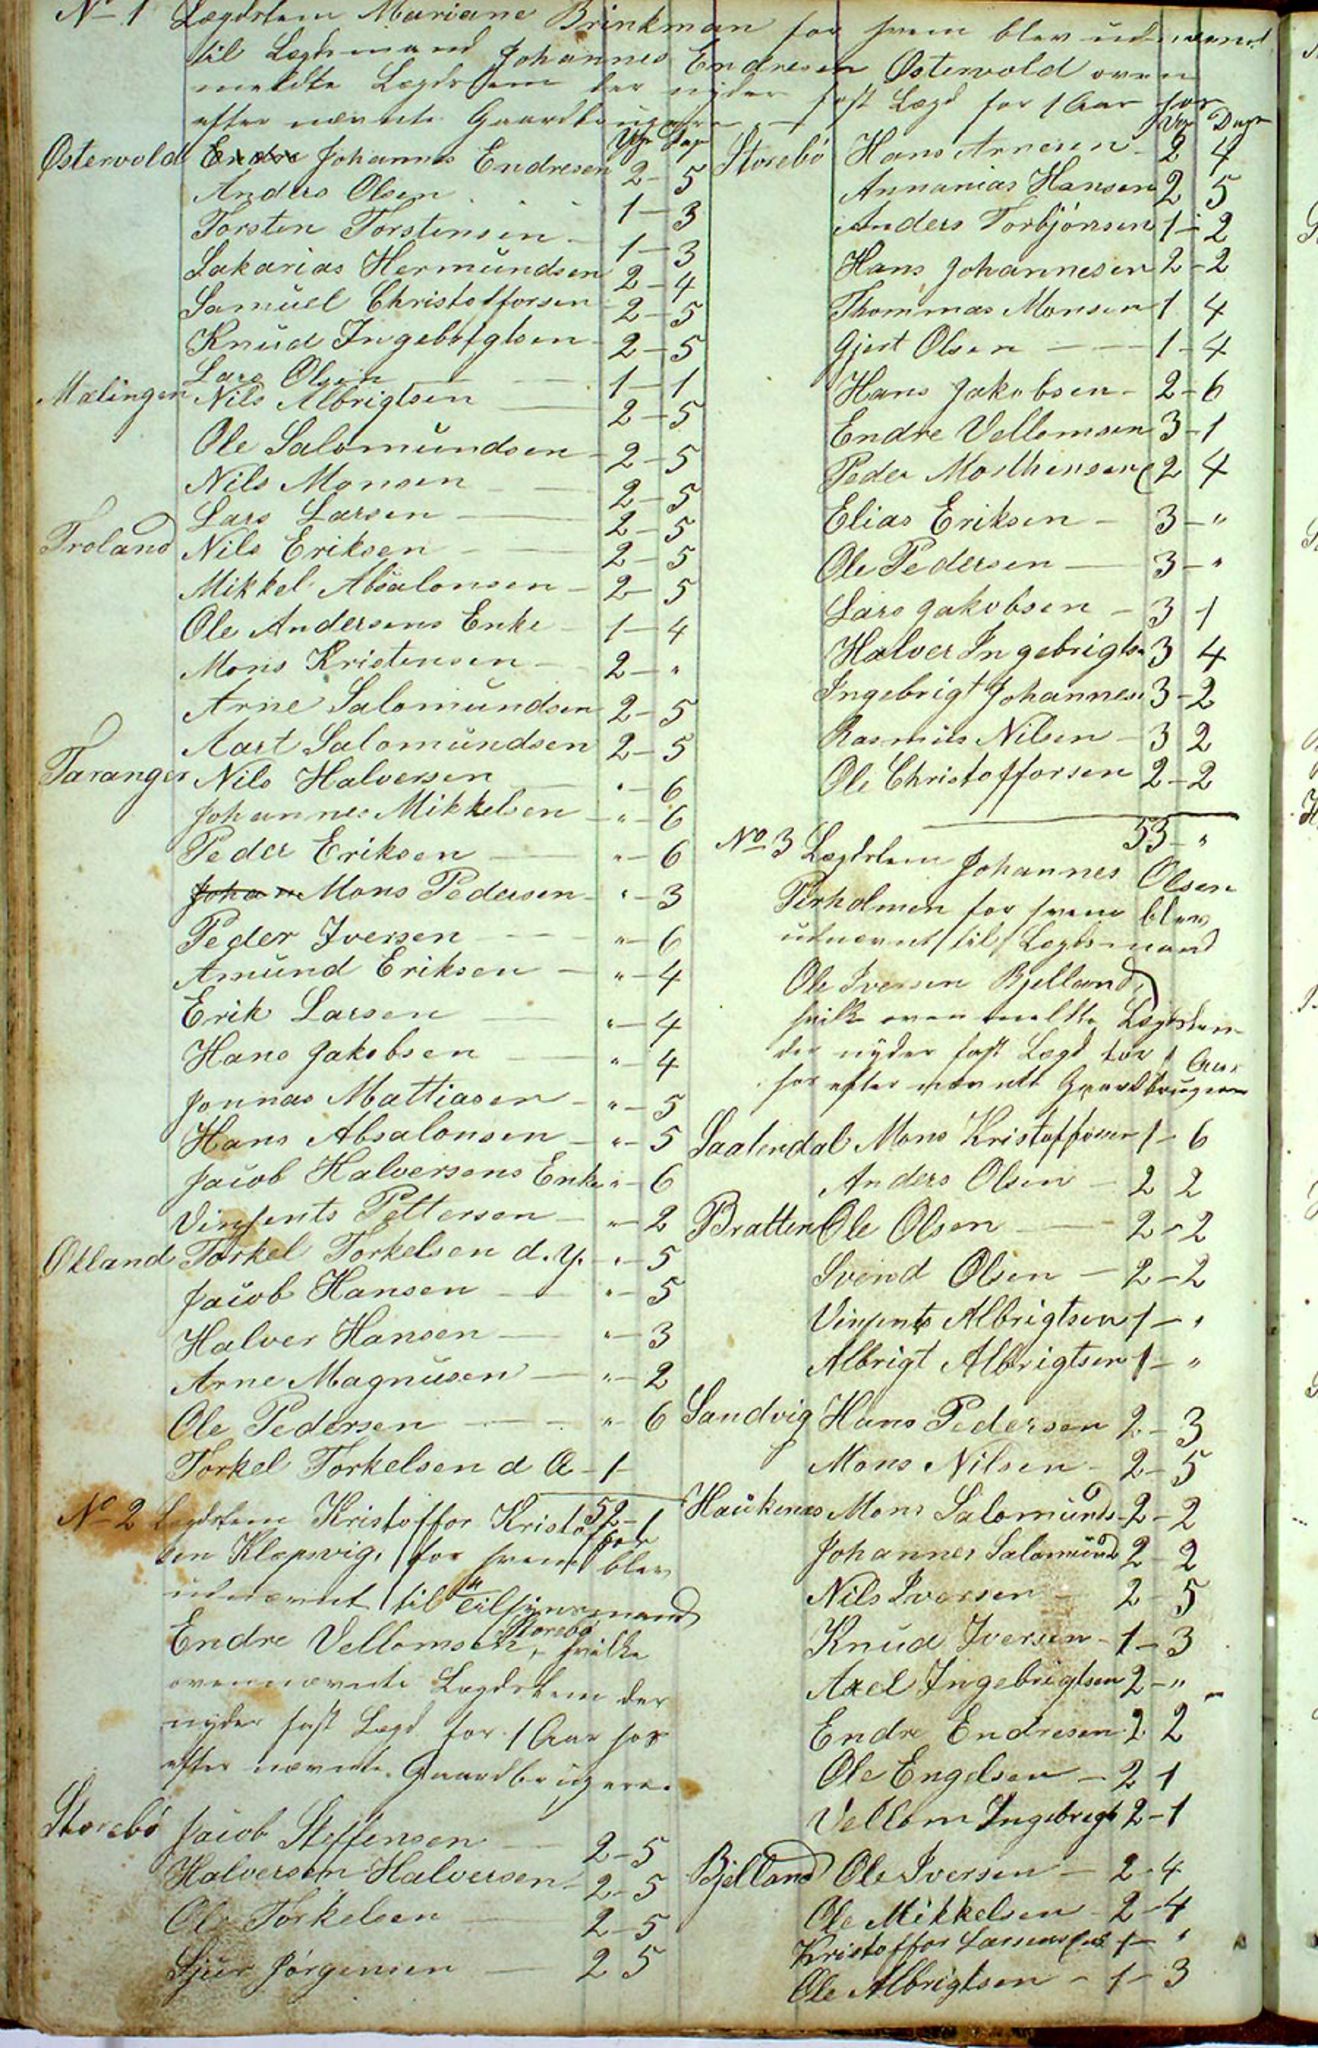 No 1 Lægdslem Mariane Brinkman for hvem blev udnævnt
til Lægdsmand Johannes Endresen Østervold oven
meldte Lægdslem der nyder fast Lægd for 1 Aar hos
efter nævnte Gaardbrugere
Uger Dage
Østervold Endre Johannes Endresen 2 - 5
Anders Olsen 1 - 3
Torsten Torstensen 1 - 3
Sakarias Hermundsen 2 - 4
Samuel Christofforsen 2 - 5
Knud Ingebrigtsen 2 - 5
Lars Olsen 1 - 1
Mælingen Nils Albrigtsen 2 - 5
Ole Salomundsen 2 - 5
Nils Monsen 2 - 5
Lars Larsen 2 - 5
Troland Nils Eriksen 2 - 5
Mikkel Absalonsen 2 - 5
Ole Andersens Enke 1 - 4
Mons Kristensen 2 - "
Arne Salomundsen 2 - 5
Aart Salomundsen 2 - 5
Taranger Nils Halversen " - 6
Johannes Mikkelsen " - 6
Peder Eriksen " - 6
Johan Mons Pedersen " - 3
Peder Iversen " - 6
Amund Eriksen " - 4
Erik Larsen " - 4
Hans Jakobsen " - 4
Jonnas Mattiasen " - 5
Hans Absalonsen " - 5
Jacob Halversens Enke " - 6
Vinsents Pettersen " - 2
Økland Torkel Torkelsen d. y. " - 5
Jacob Hansen " - 5
Halver Hansen " - 3
Arne Magnusen " - 2
Ole Pedersen " - 6
Torkel Torkelsen d Æ - 1 -
52 - 1
No 2 Lægdslem Kristoffor Kristoffor
sen Klepsvig, for hvem blev
udnævnt til Tilsynsmand
Endre Vellomsen Storebø, hvilke
ovennævnte Lægdslem der
nyder fast Lægd for 1 Aar hos
efter nævnte Gaardbrugere.
Storebø Jacob Steffensen 2 - 5
Halversen Halversen 2 - 5
Ole Torkelsen 2 - 5
Sjur Jørgensen 2 5
Uger Dage
Storebø Hans Arnesen 2 4
Annanias Hansen 2 5
Anders Torbjørnsen 1 - 2
Hans Johannesen 2 - 2
Thommas Monsen 1 4
Gjert Olsen 1 - 4
Hans Jakobsen 2 - 6
Endre Vellomsen 3 - 1
Peder Mosthensen 2 4
Elias Eriksen 3 - "
Ole Pedersen 3 - "
Lars Jakobsen 3 1
Halver Ingebrigtsn 3 4
Ingebrigt Johannesn 3 - 2
Rasmus Nilsen 3 2
Ole Christofforsen 2 - 2
53 - "
No 3 Lægdslem Johannes Olsen
Perholmen for hvem blev
udnævnt til Lægdsmand
Ole Iversen Bjelland,
hvilke ovenmeldte Lægdslem
der nyder fast Lægd for 1 Aar
hos efter nævnte Gaardbrugere
Saalendal Mons Kristoffersen 1 - 6
Anders Olsen 2 2
Bratten Ole Olsen 2 - 2
Svend Olsen 2 - 2
Vinsents Albrigtsen 1 - "
Albrigt Albrigtsen 1 - "
Sandvig Hans Pedersen 2 - 3
Mons Nilsen 2 - 5
Haukenæs Mons Salomunds 2 - 2
Johannes Salomund 2 - 2
Nils Iversen 2 - 5
Knud Iversen 1 - 3
Axel Ingebrigtsen 2 - "
Endre Endresen 2 2
Ole Engelsen 2 1
Vellom Ingebrigt 2 - 1
Bjelland Ole Iversen 2 - 4
Ole Mikkelsen 2 - 4
Kristoffor Larsens Enk 1 - "
Ole Albrigtsen 1 - 3